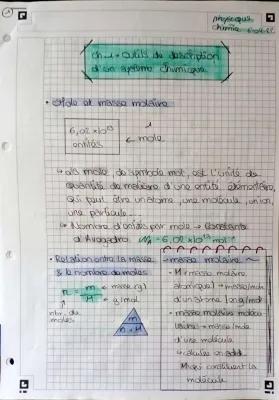 physique
chimie
ch-1 • Outils de description
d'un système chimique
• Mole et masse molaire
6,02 ×10²³
entités
← 1 mole
↳ La mole, de symbole mol, est l'unité de
quantité de matière d'une entité élémentaire,
qui peut être un atome, une molécule, un ion,
une particule.
↳ Nombre d'entités par mole → Constante
d'Avogadro
• Relation entre la masse
& le nombre de moles
n = m ← masse (g)
M ← g/mol
nbr. de
moles
m
n × M
masse molaire
• M masse molaire
atomique → masse/mole
d'un atome
• masse molaire molécu
laire → masse/mole
d'une molécule
↳ calculée en add.
M qui constituent la
molécule